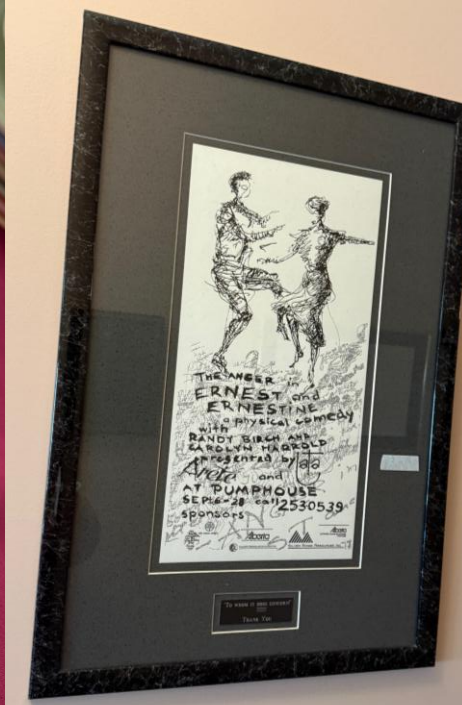 THE ANGER in
ERNEST and
ERNESTINE
a physical comedy
with
RANDY BIRCH AND
CAROLYN HARROLD
presented by
Areta and
AT PUMPHOUSE
SEPT 6-28 call 2530539
sponsors
Alberta
Alberta
"To whom it may concern"
Thank You